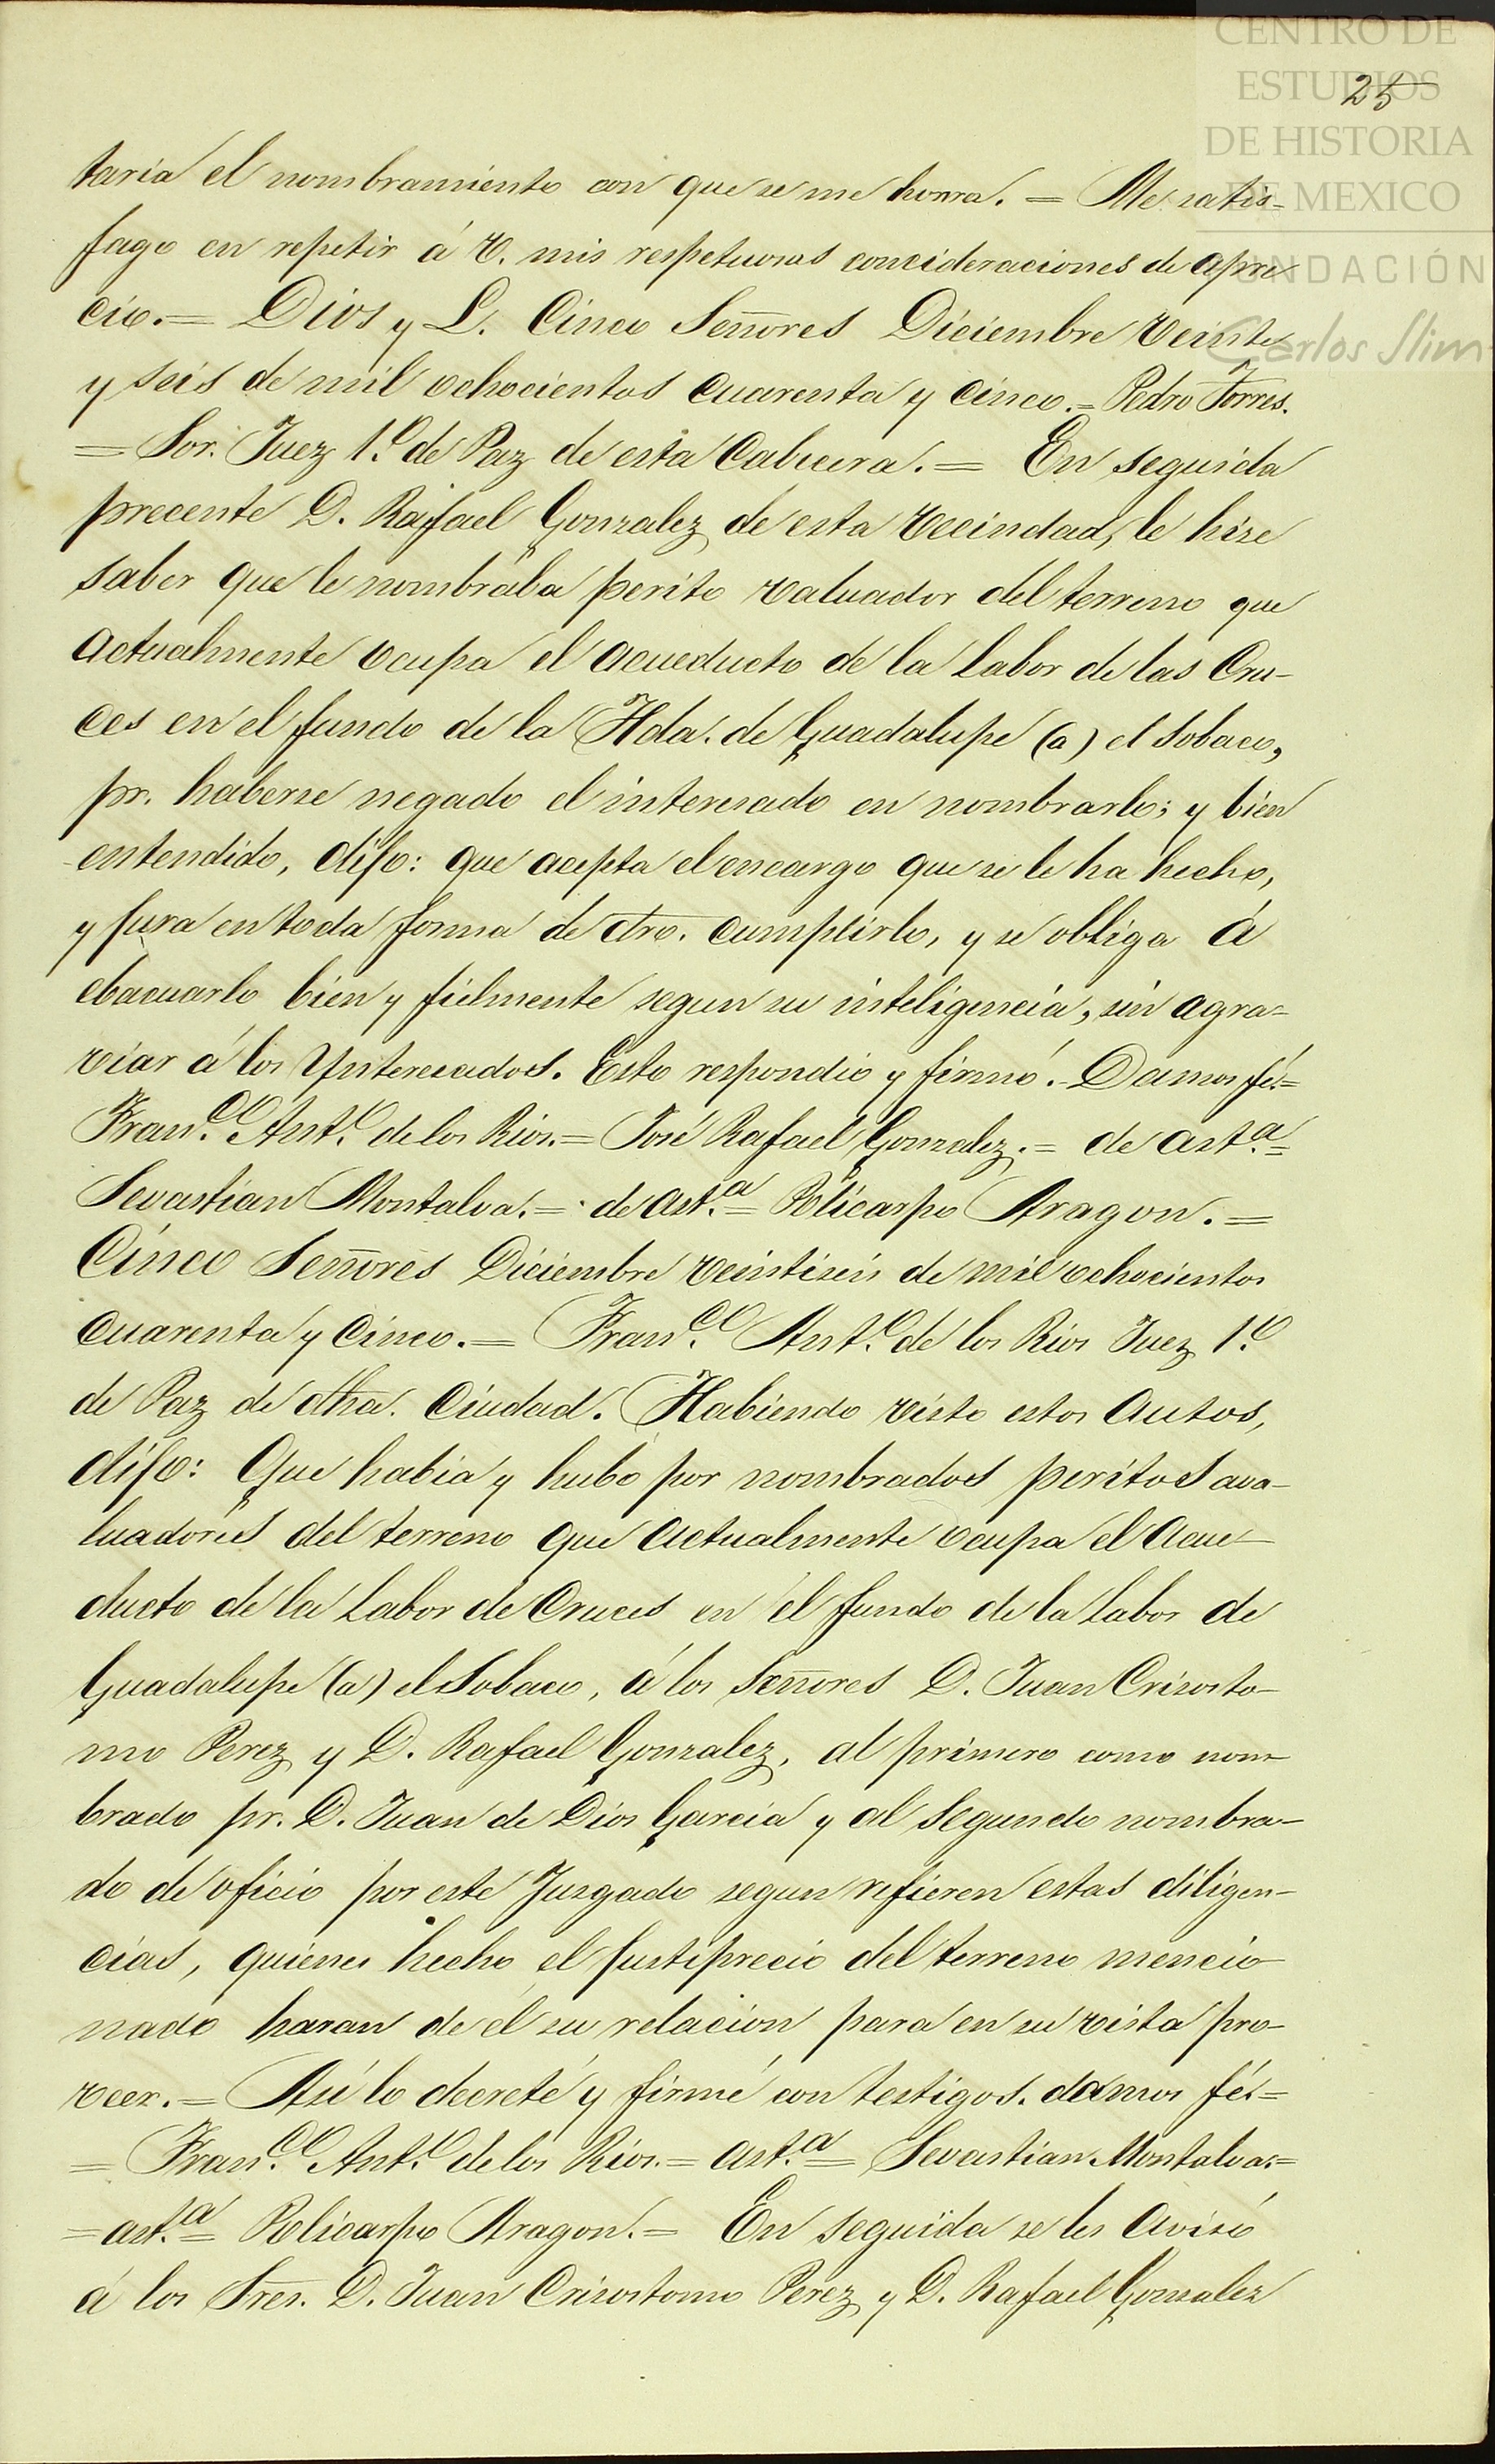 CENTRO DE
ESTUDIOS
DE HISTORIA
DE MEXICO
FUNDACIÓN
Carlos Slim
25
taria el nombramiento con que se me honra. = Me satis-
fago en repetir á V. mis respetuosas concideraciones de apre-
cio. = Dios y L. Cinco Señores Diciembre veinte
y seis de mil ochocientos cuarenta y cinco. = Pedro Torres.
= Sor. Juez 1.º de Paz de esta Cabecera. = En seguida
precente D. Rafael Gonzalez de esta vecindad, le hize
saber que le nombraba perito valuador del terreno que
actualmente ocupa el acueducto de la Labor de las Cru-
ces en el fundo de la Hda. de Guadalupe (a) el Sobaco,
pr. haberse negado el interesado en nombrarlo; y bien
entendido, dijo: que acepta el encargo que se le ha hecho,
y jura en toda forma de dro. cumplirlo, y se obliga á
ebacuarlo bien y fielmente segun su inteligencia, sin agra-
viar á los Ynteresados. Esto respondió y firmó. - Damos fé. =
Fran.co Ant.o de los Rios. = José Rafael Gonzalez. = de ast.a =
Sevastian Montalva. = de ast.a = Policarpo Aragon. =
Cinco Señores Diciembre veintiseis de mil ochocientos
cuarenta y cinco. = Fran.co Ant.o de los Rios Juez 1.º
de Paz de dha. Ciudad. Habiendo visto estos autos,
dijo: Que habia y hubo por nombrados peritos ava-
luadores del terreno que actualmente ocupa el Acue-
ducto de la Labor de Cruces en el fundo de la Labor de
Guadalupe (a) el Sobaco, á los Señores D. Juan Crisosto-
mo Perez y D. Rafael Gonzalez, al primero como nom-
brado pr. D. Juan de Dios Garcia y al segundo nombra-
do de oficio por este Juzgado segun refieren estas diligen-
cias, quienes hecho el justiprecio del terreno mencio-
nado haran de él su relacion para en su vista pro-
veer. = Asi lo decreté y firmé con testigos. damos fé. =
= Fran.co Ant.o de los Rios. = ast.a = Sevastian Montalva. =
= ast.a = Policarpo Aragon. = En seguida se les avisó
á los Sres. D. Juan Crisostomo Perez y D. Rafael Gonzalez